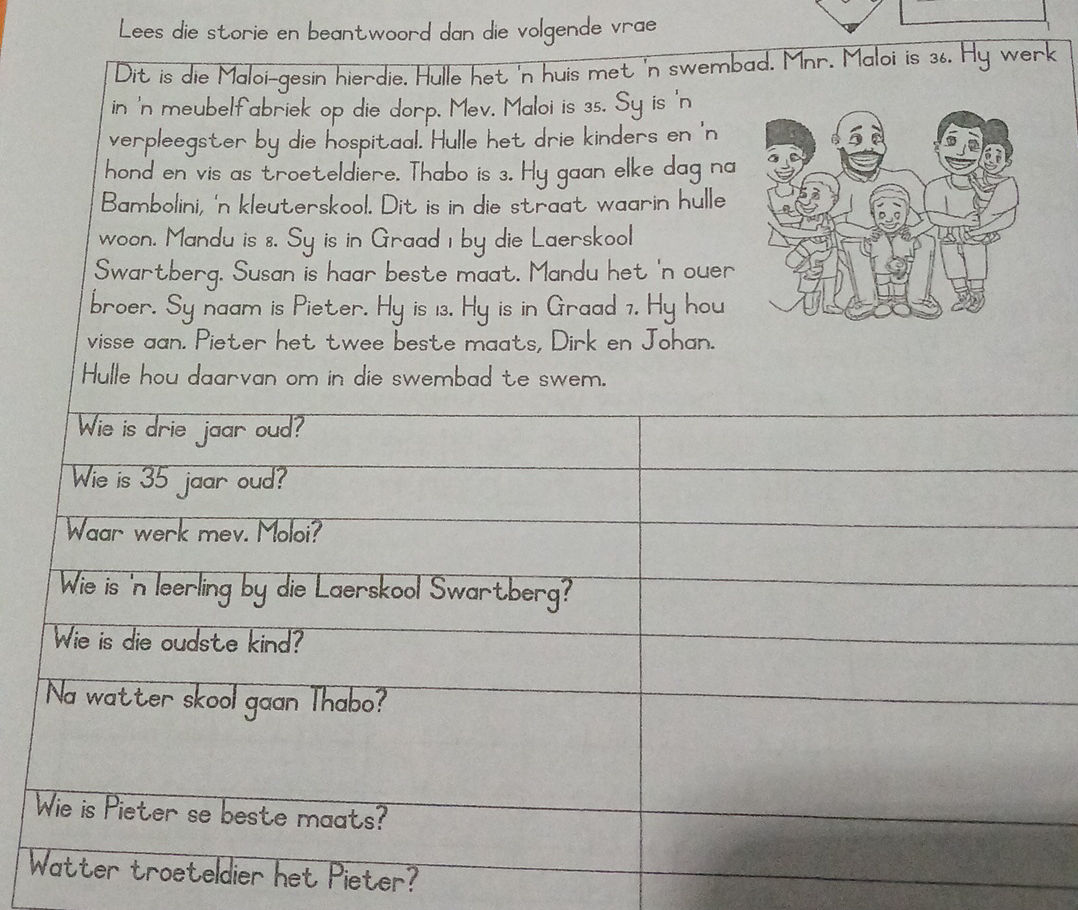 Lees die storie en beantwoord dan die volgende vrae
Dit is die Maloi-gesin hierdie. Hulle het 'n huis met 'n swembad. Mnr. Maloi is 36. Hy werk
in 'n meubelfabriek op die dorp. Mev. Maloi is 35. Sy is 'n
verpleegster by die hospitaal. Hulle het drie kinders en 'n
hond en vis as troeteldiere. Thabo is 3. Hy gaan elke dag na
Bambolini, 'n kleuterskool. Dit is in die straat waarin hulle
woon. Mandu is 8. Sy is in Graad 1 by die Laerskool
Swartberg. Susan is haar beste maat. Mandu het 'n ouer
broer. Sy naam is Pieter. Hy is 13. Hy is in Graad 7. Hy hou
visse aan. Pieter het twee beste maats, Dirk en Johan.
Hulle hou daarvan om in die swembad te swem.
Wie is drie jaar oud?
Wie is 35 jaar oud?
Waar werk mev. Moloi?
Wie is 'n leerling by die Laerskool Swartberg?
Wie is die oudste kind?
Na watter skool gaan Thabo?
Wie is Pieter se beste maats?
Watter troeteldier het Pieter?